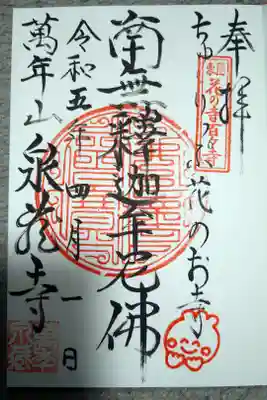 奉拝
ちゅりっぷ花のお寺
南無釋迦牟尼佛
令和五年四月一日
萬年山泉龍寺